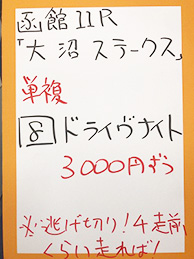 函館11R
「大沼ステークス」
単複
8 ドライヴナイト
3000円ずつ
※逃げ切り!4走前
くらい走れば!